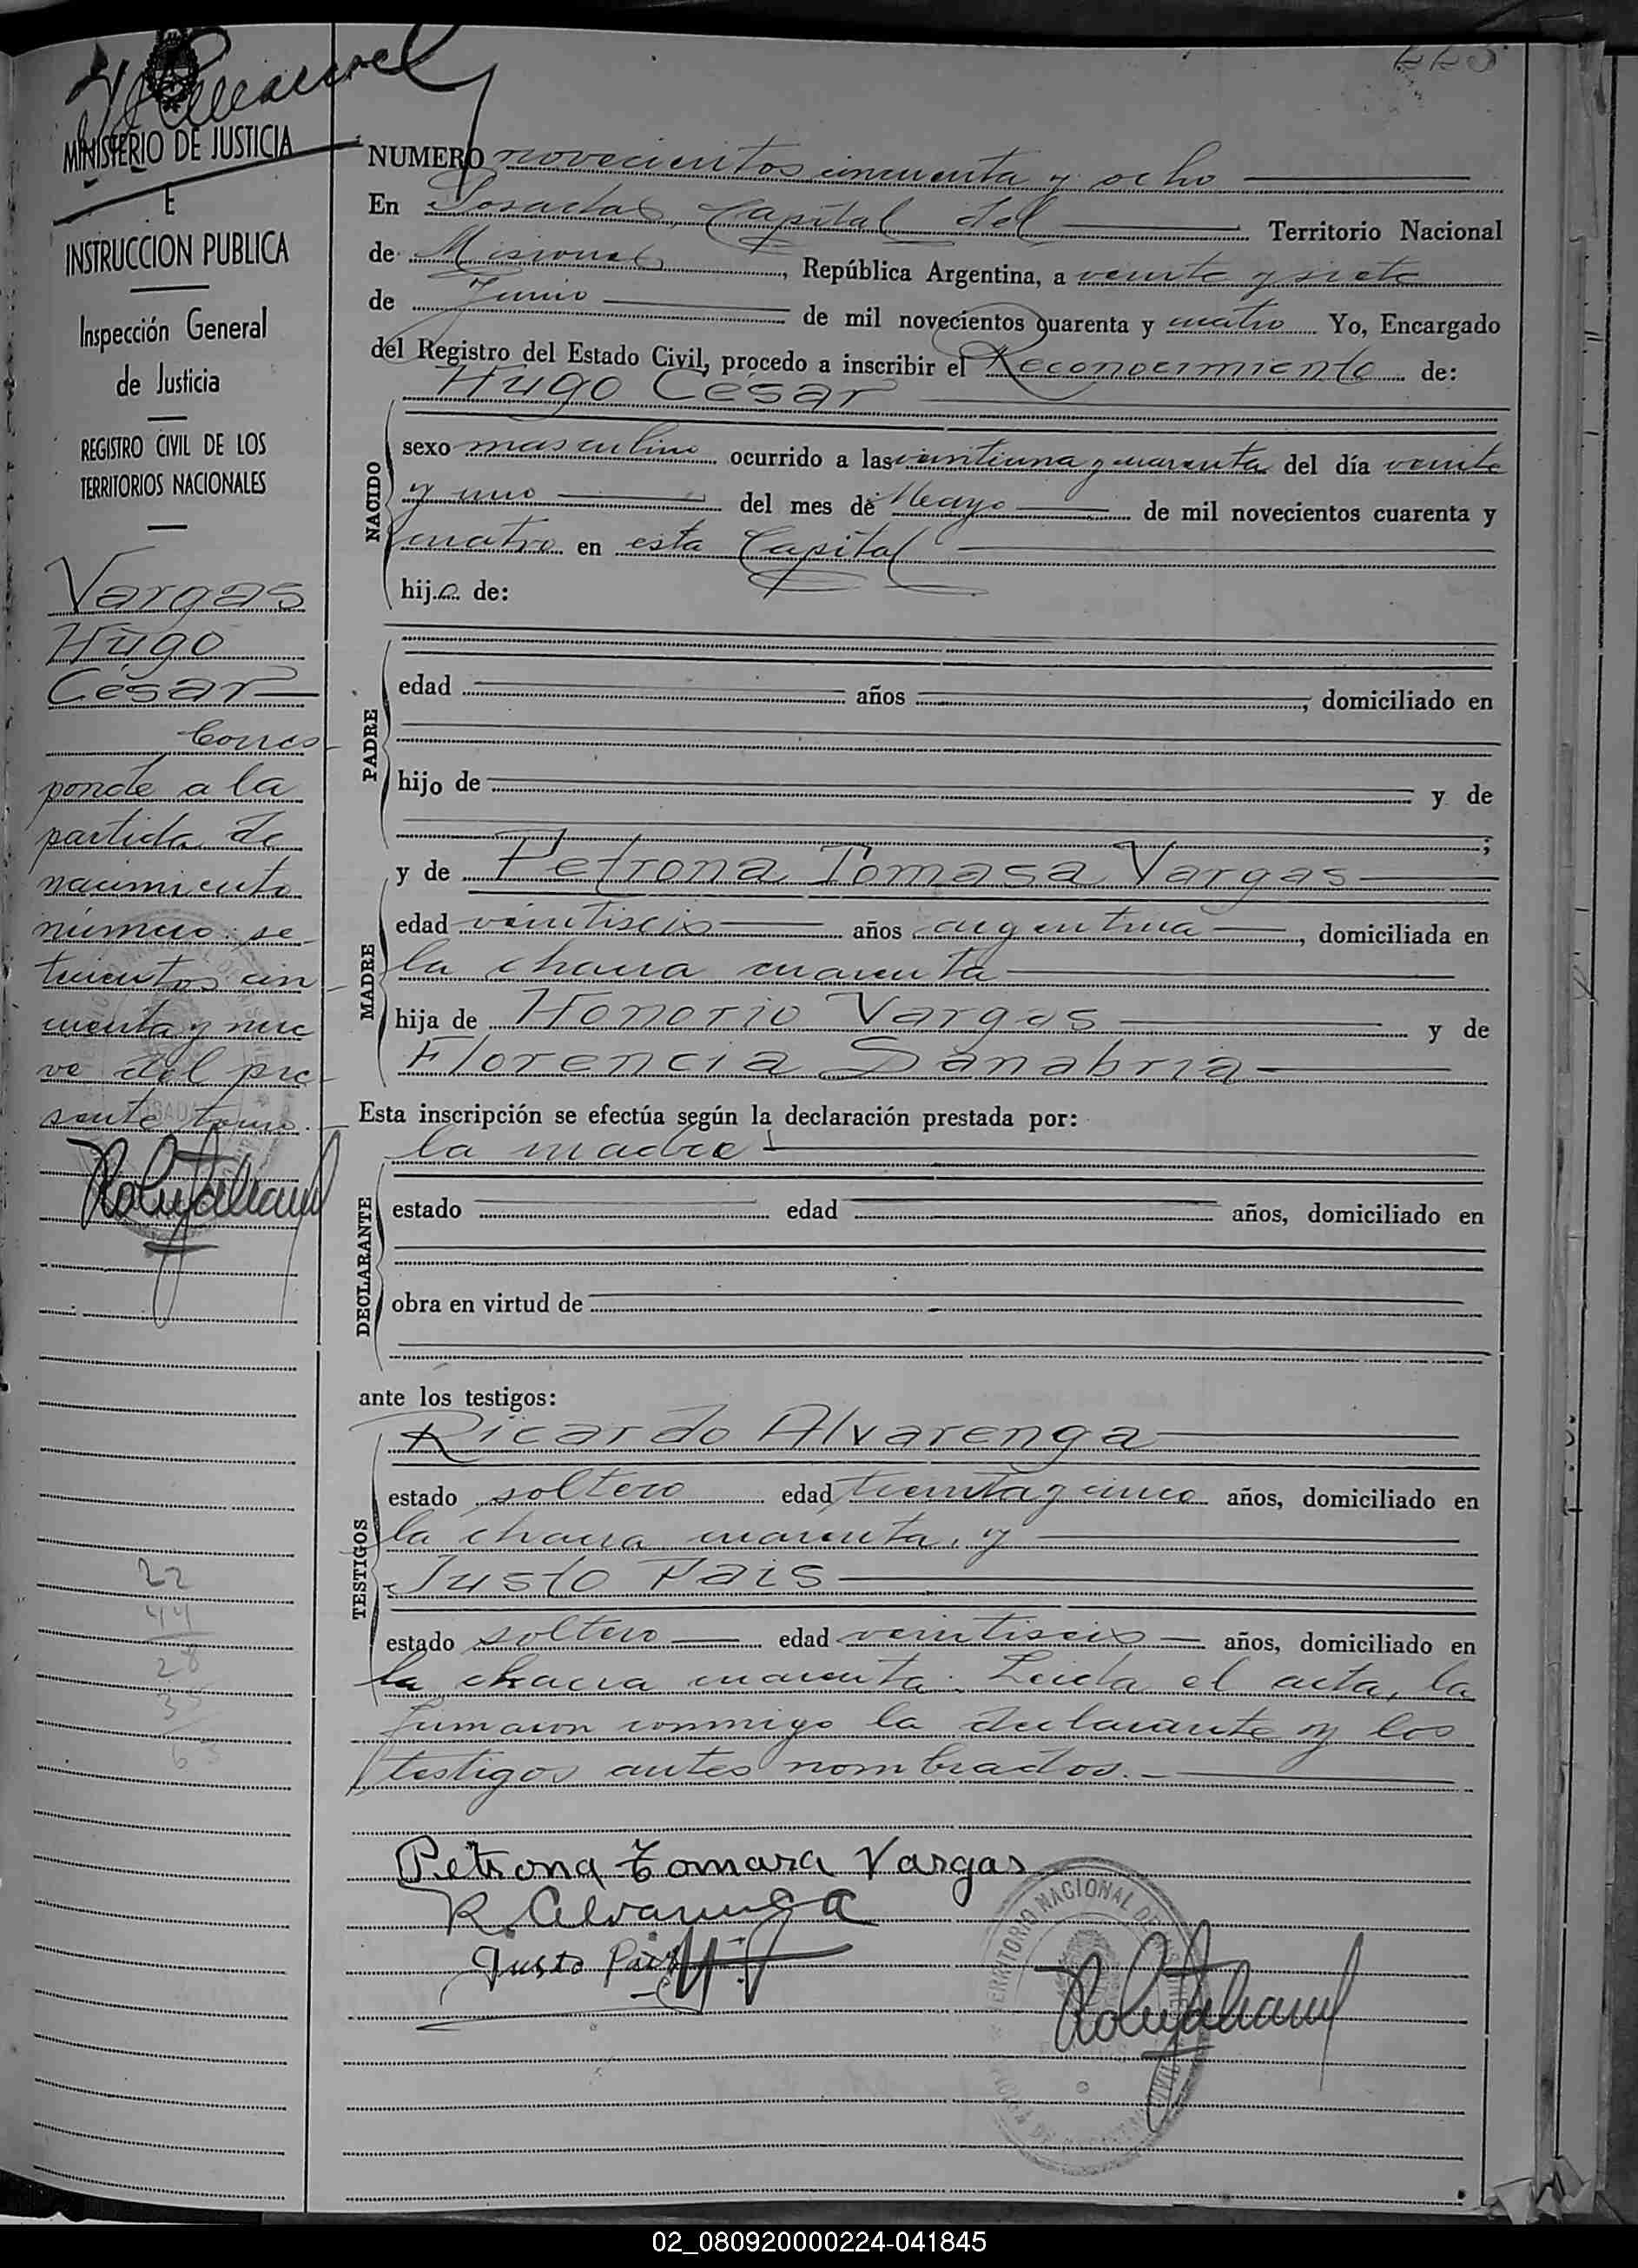 MINISTERIO DE JUSTICIA
E
INSTRUCCION PUBLICA
Inspección General
de Justicia
REGISTRO CIVIL DE LOS
TERRITORIOS NACIONALES
Vargas
Hugo
César
Corres
ponde a la
partida de
nacimiento
número se
tecientos cin
cuenta y nue
ve del pre
sente tomo.
22
44
28
35
63
NUMERO novecientos cincuenta y ocho
En Posadas, Capital del Territorio Nacional
de Misiones, República Argentina, a veinte y siete
de Junio de mil novecientos cuarenta y cuatro Yo, Encargado
del Registro del Estado Civil, procedo a inscribir el Reconocimiento de:
Hugo César
NACIDO
sexo masculino ocurrido a las veintiuna y cuarenta del día veinte
y uno del mes de Mayo de mil novecientos cuarenta y
cuatro en esta Capital
hijo de:
PADRE
edad años, domiciliado en
hijo de y de
;
MADRE
y de Petrona Tomasa Vargas
edad veintiseis años argentina, domiciliada en
la chacra cuarenta
hija de Honorio Vargas y de
Florencia Sanabria
Esta inscripción se efectúa según la declaración prestada por:
la madre
DECLARANTE
estado edad años, domiciliado en
obra en virtud de
ante los testigos:
TESTIGOS
Ricardo Alvarenga
estado soltero edad treinta y cinco años, domiciliado en
la chacra cuarenta, y
Justo Pais
estado soltero edad veintiseis años, domiciliado en
la chacra cuarenta. Leida el acta, la
firmaron conmigo la declarante y los
testigos antes nombrados.
Petrona Tomara Vargas
R. Alvarenga
Justo Pais
TERRITORIO NACIONAL DE
02_080920000224-041845